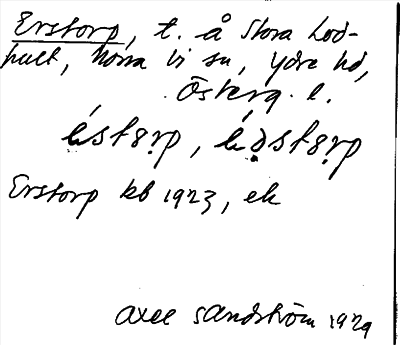 Erstorp, t. å Stora Lod-
hult, Norra Vi sn, Ydre hd,
Österg. l.
Erstorp kb 1923, ek
Axel Sandström 1929